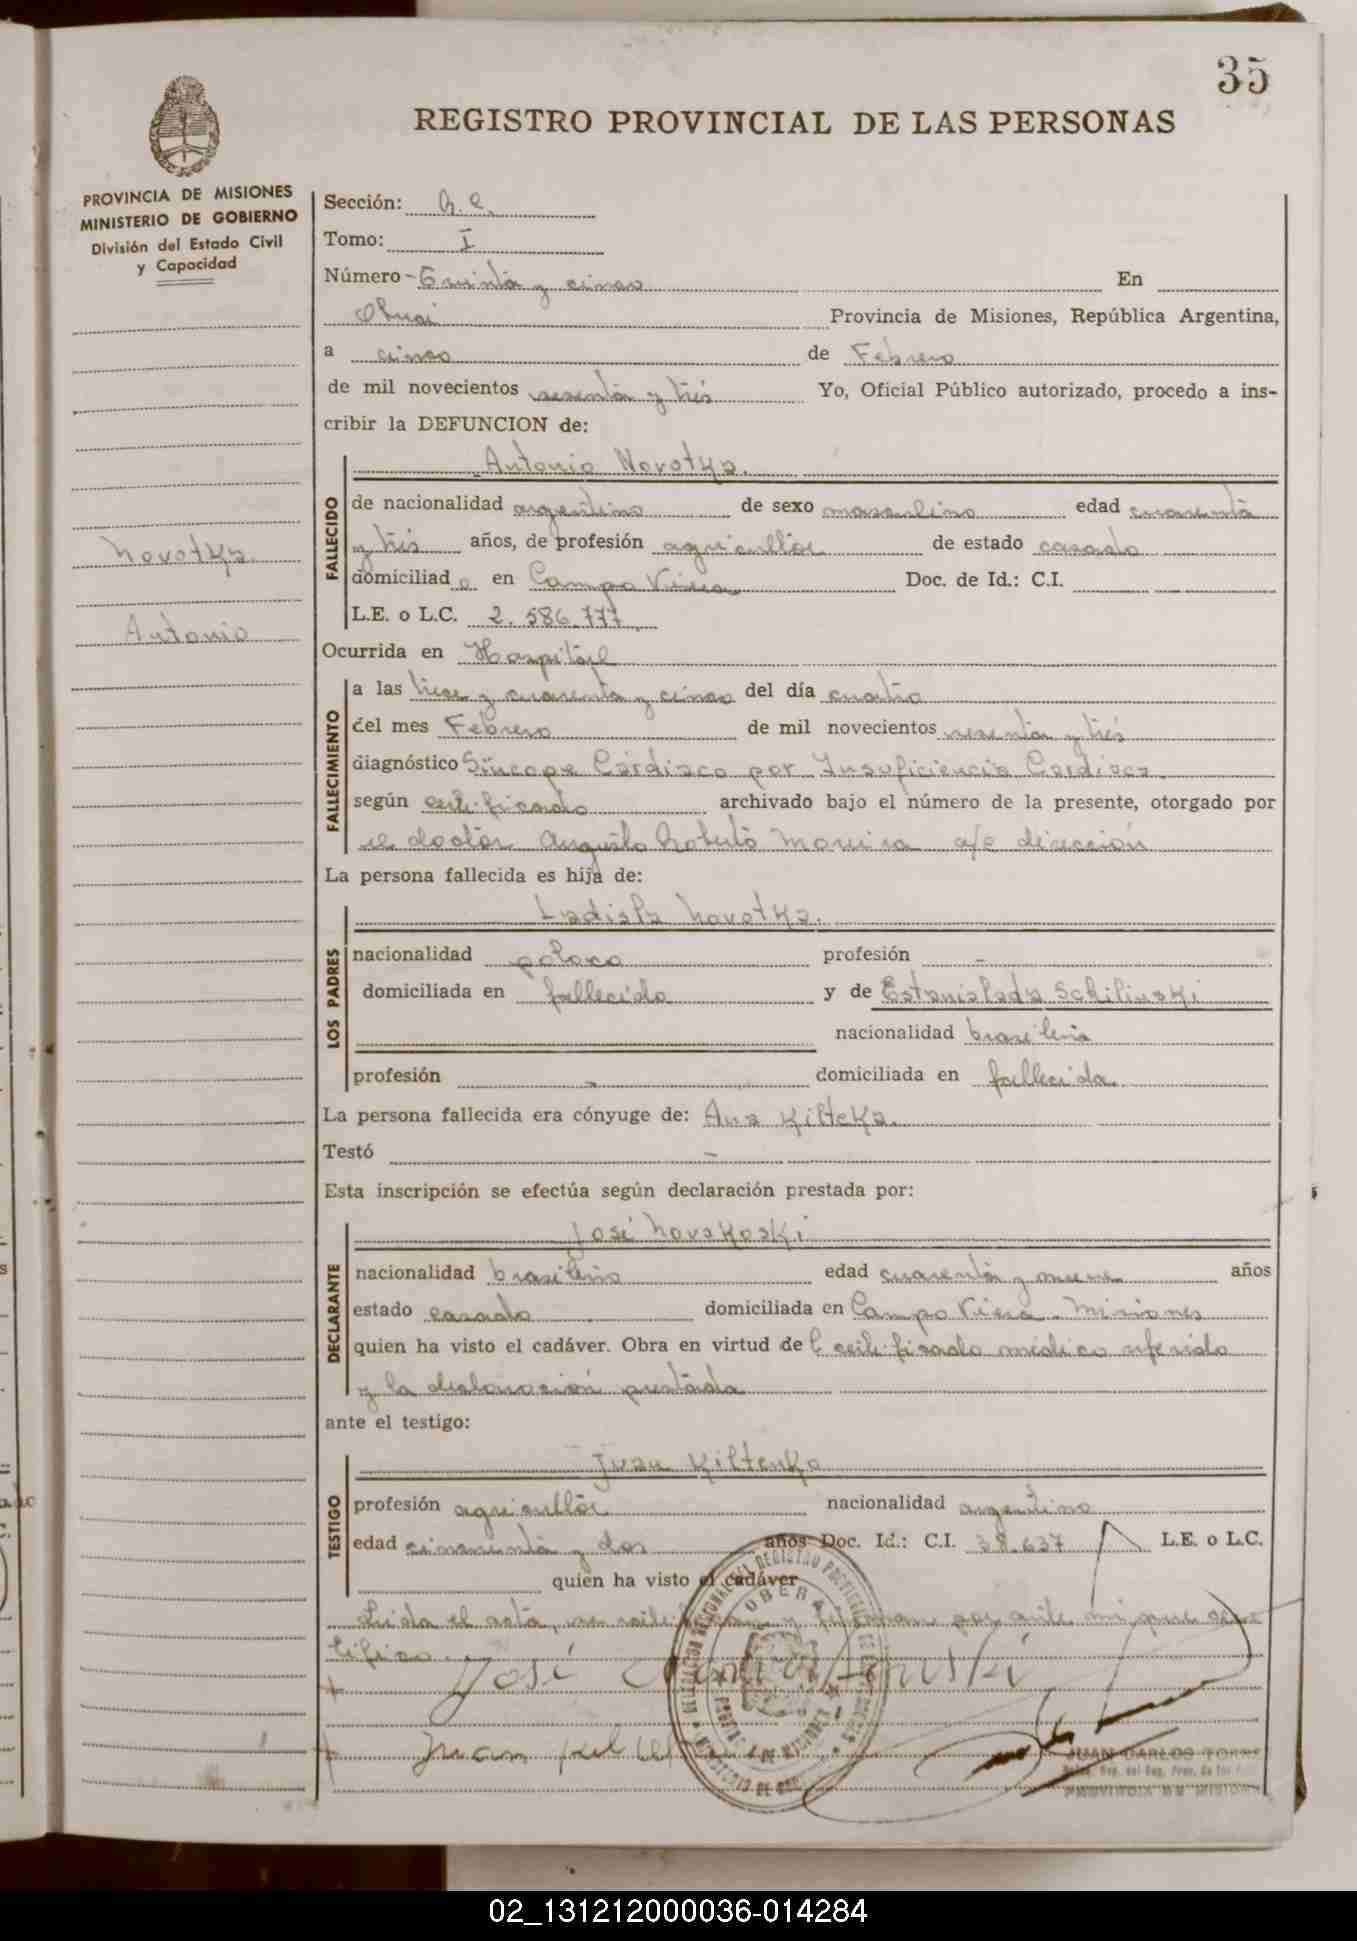 35
REGISTRO PROVINCIAL DE LAS PERSONAS
PROVINCIA DE MISIONES
MINISTERIO DE GOBIERNO
División del Estado Civil
y Capacidad
Novotka
Antonio
Sección:
Tomo: I
Número - Treinta y cinco En
Oberá Provincia de Misiones, República Argentina,
a cinco de Febrero
de mil novecientos sesenta y trés Yo, Oficial Público autorizado, procedo a ins-
cribir la DEFUNCION de:
Antonio Novotka.
FALLECIDO
de nacionalidad argentino de sexo masculino edad cuarenta
y trés años, de profesión agricultor de estado casado
domiciliado en Campo Viera Doc. de Id.: C.I.
L.E. o L.C. 2.586.777
Ocurrida en Hospital
FALLECIMIENTO
a las trece y cuarenta y cinco del día cuatro
del mes Febrero de mil novecientos sesenta y trés
diagnóstico Síncope Cardiaco por Insuficiencia Cardiaca
según certificado archivado bajo el número de la presente, otorgado por
el doctor Augusto Moreira a/c dirección
La persona fallecida es hija de:
LOS PADRES
Ladisla Novotka.
nacionalidad polaco profesión -
domiciliada en fallecido y de Estanislada Schilinski
nacionalidad brasileña
profesión - domiciliada en fallecida
La persona fallecida era cónyuge de: Ana Kilteka.
Testó -
Esta inscripción se efectúa según declaración prestada por:
DECLARANTE
José Novakoski
nacionalidad brasileño edad cuarenta y nueve años
estado casado domiciliada en Campo Viera - Misiones
quien ha visto el cadáver. Obra en virtud del certificado médico referido
y la declaración prestada
ante el testigo:
TESTIGO
Juan Kiltenko
profesión agricultor nacionalidad argentino
edad cincuenta y dos años Doc. Id.: C.I. 38.637 L.E. o L.C.
quien ha visto el cadáver
Leída el acta, la ratifican y firman por ante mi que cer-
tifico.
José
Juan
OBERA
JUAN CARLOS TORRES
PROVINCIA DE MISIONES
02_131212000036-014284